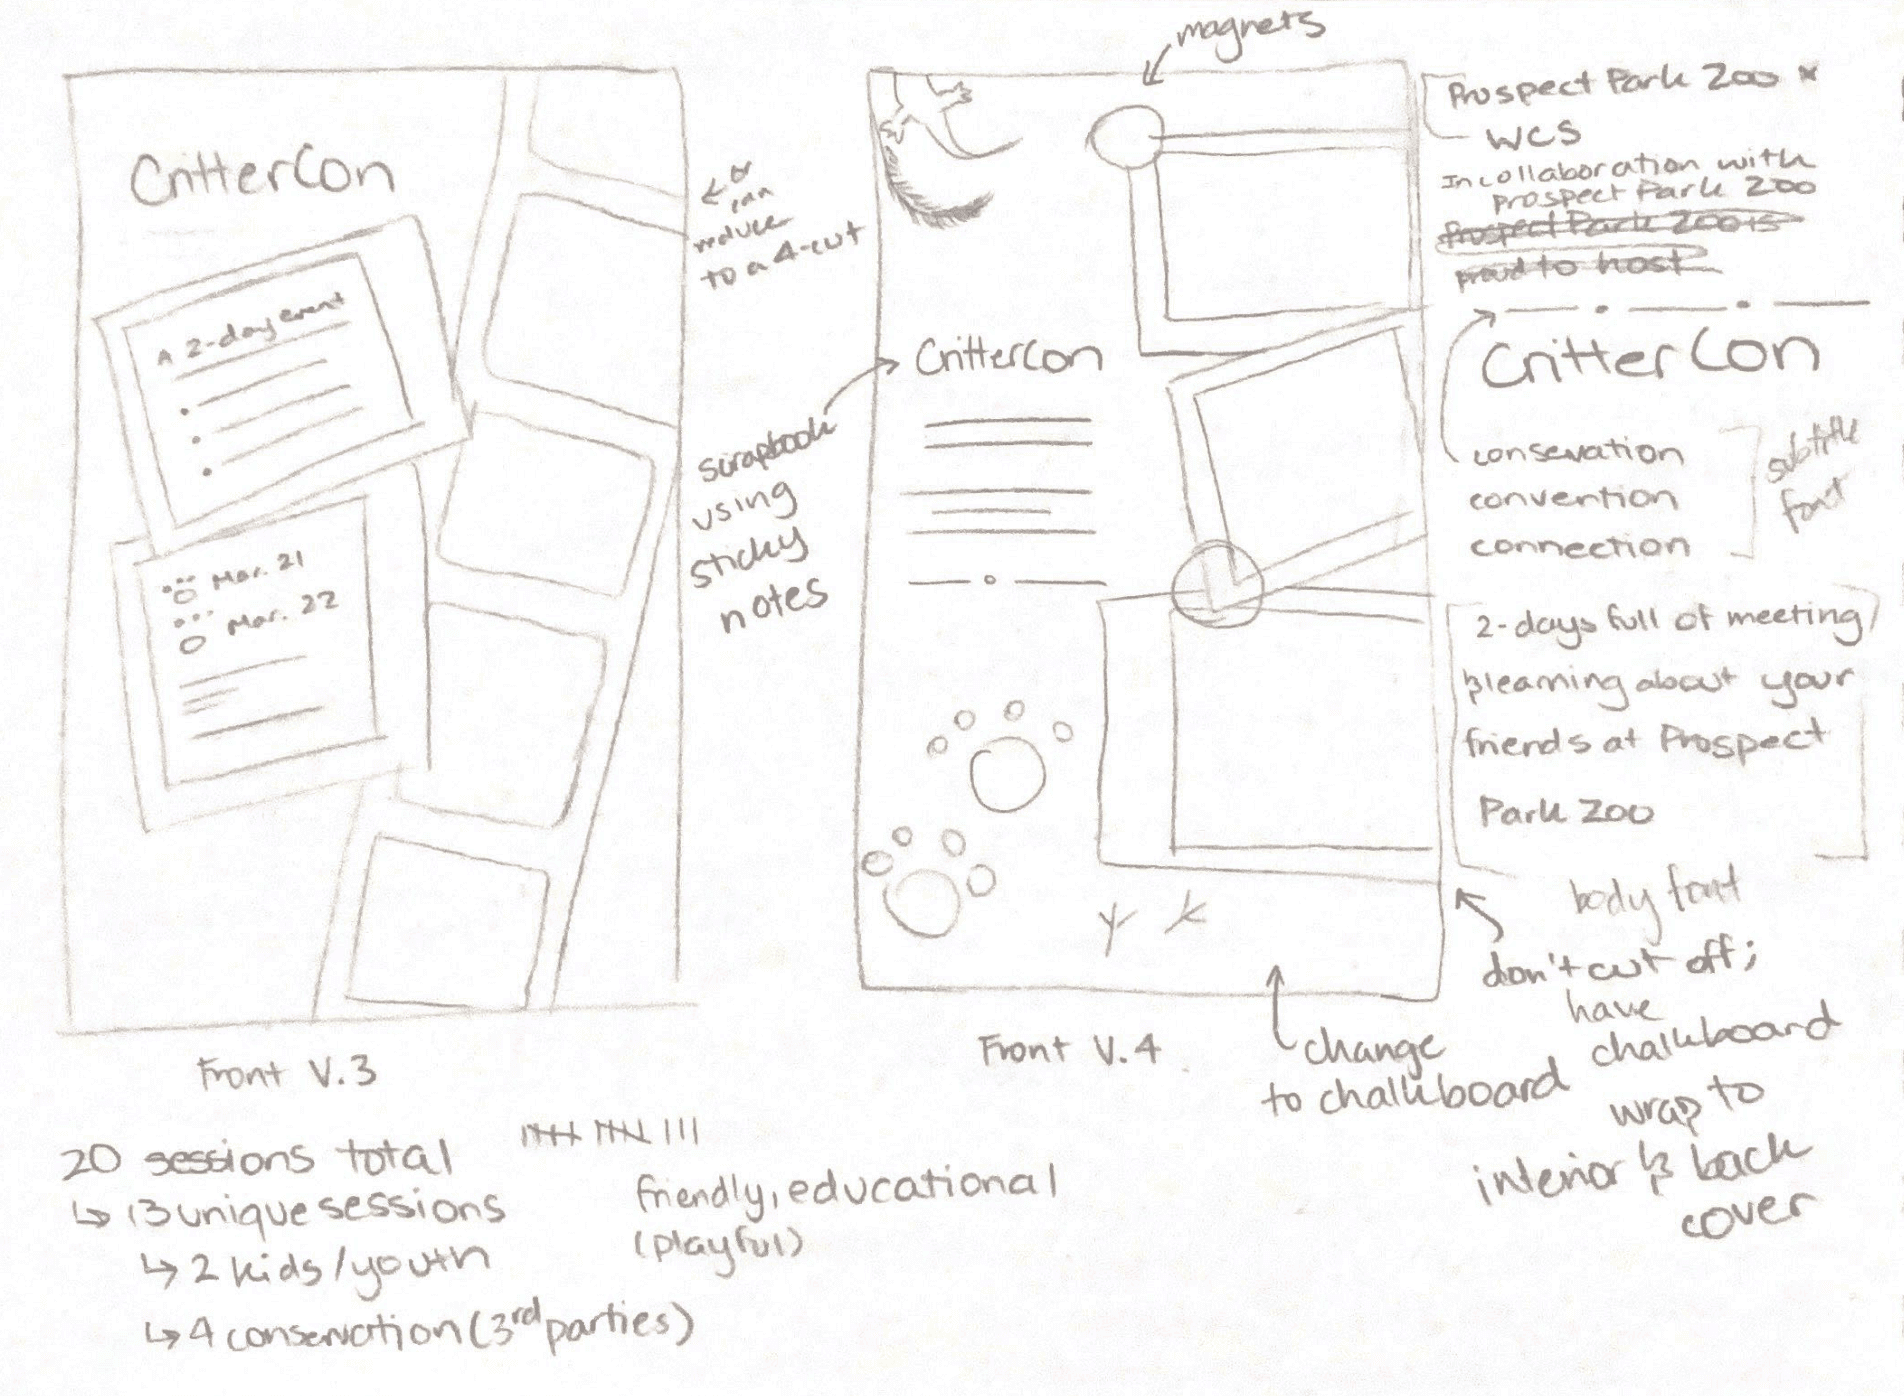 magnets
CritterCon
A 2-day event
Mar. 21
Mar. 22
← or
can
reduce
to a 4-cut
Front V.3
scrapbook
using
sticky
notes
CritterCon
Front V.4
change
to chalkboard
Prospect Park Zoo x
WCS
In collaboration with
Prospect Park Zoo
Prospect Park Zoo is
proud to host
CritterCon
consevation
convention
connection
subtitle
font
2-days full of meeting
& learning about your
friends at Prospect
Park Zoo
body font
don't cut off;
have
chalkboard
wrap to
interior & back
cover
20 sessions total
↳ 13 unique sessions
↳ 2 kids/youth
↳ 4 conservation (3rd parties)
friendly, educational
(playful)